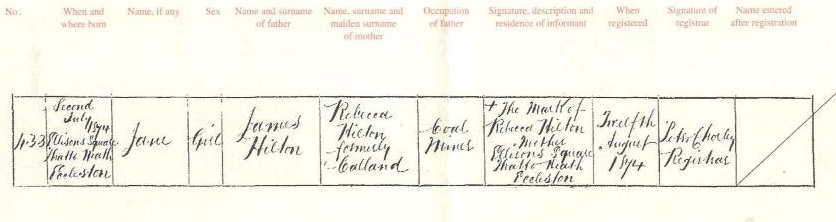 No. When and where born Name, if any Sex Name and surname of father Name, surname and maiden surname of mother Occupation of father Signature, description and residence of informant When registered Signature of registrar Name entered after registration
433
Second
July
1874
Ellisons Square
Thatto Heath
Eccleston
Jane
Girl
James
Hilton
Rebecca
Hilton
formerly
Calland
Coal
Miner
+ The Mark of
Rebecca Hilton
Mother
Ellisons Square
Thatto Heath
Eccleston
Twelfth
August
1874
Peter Chorley
Registrar